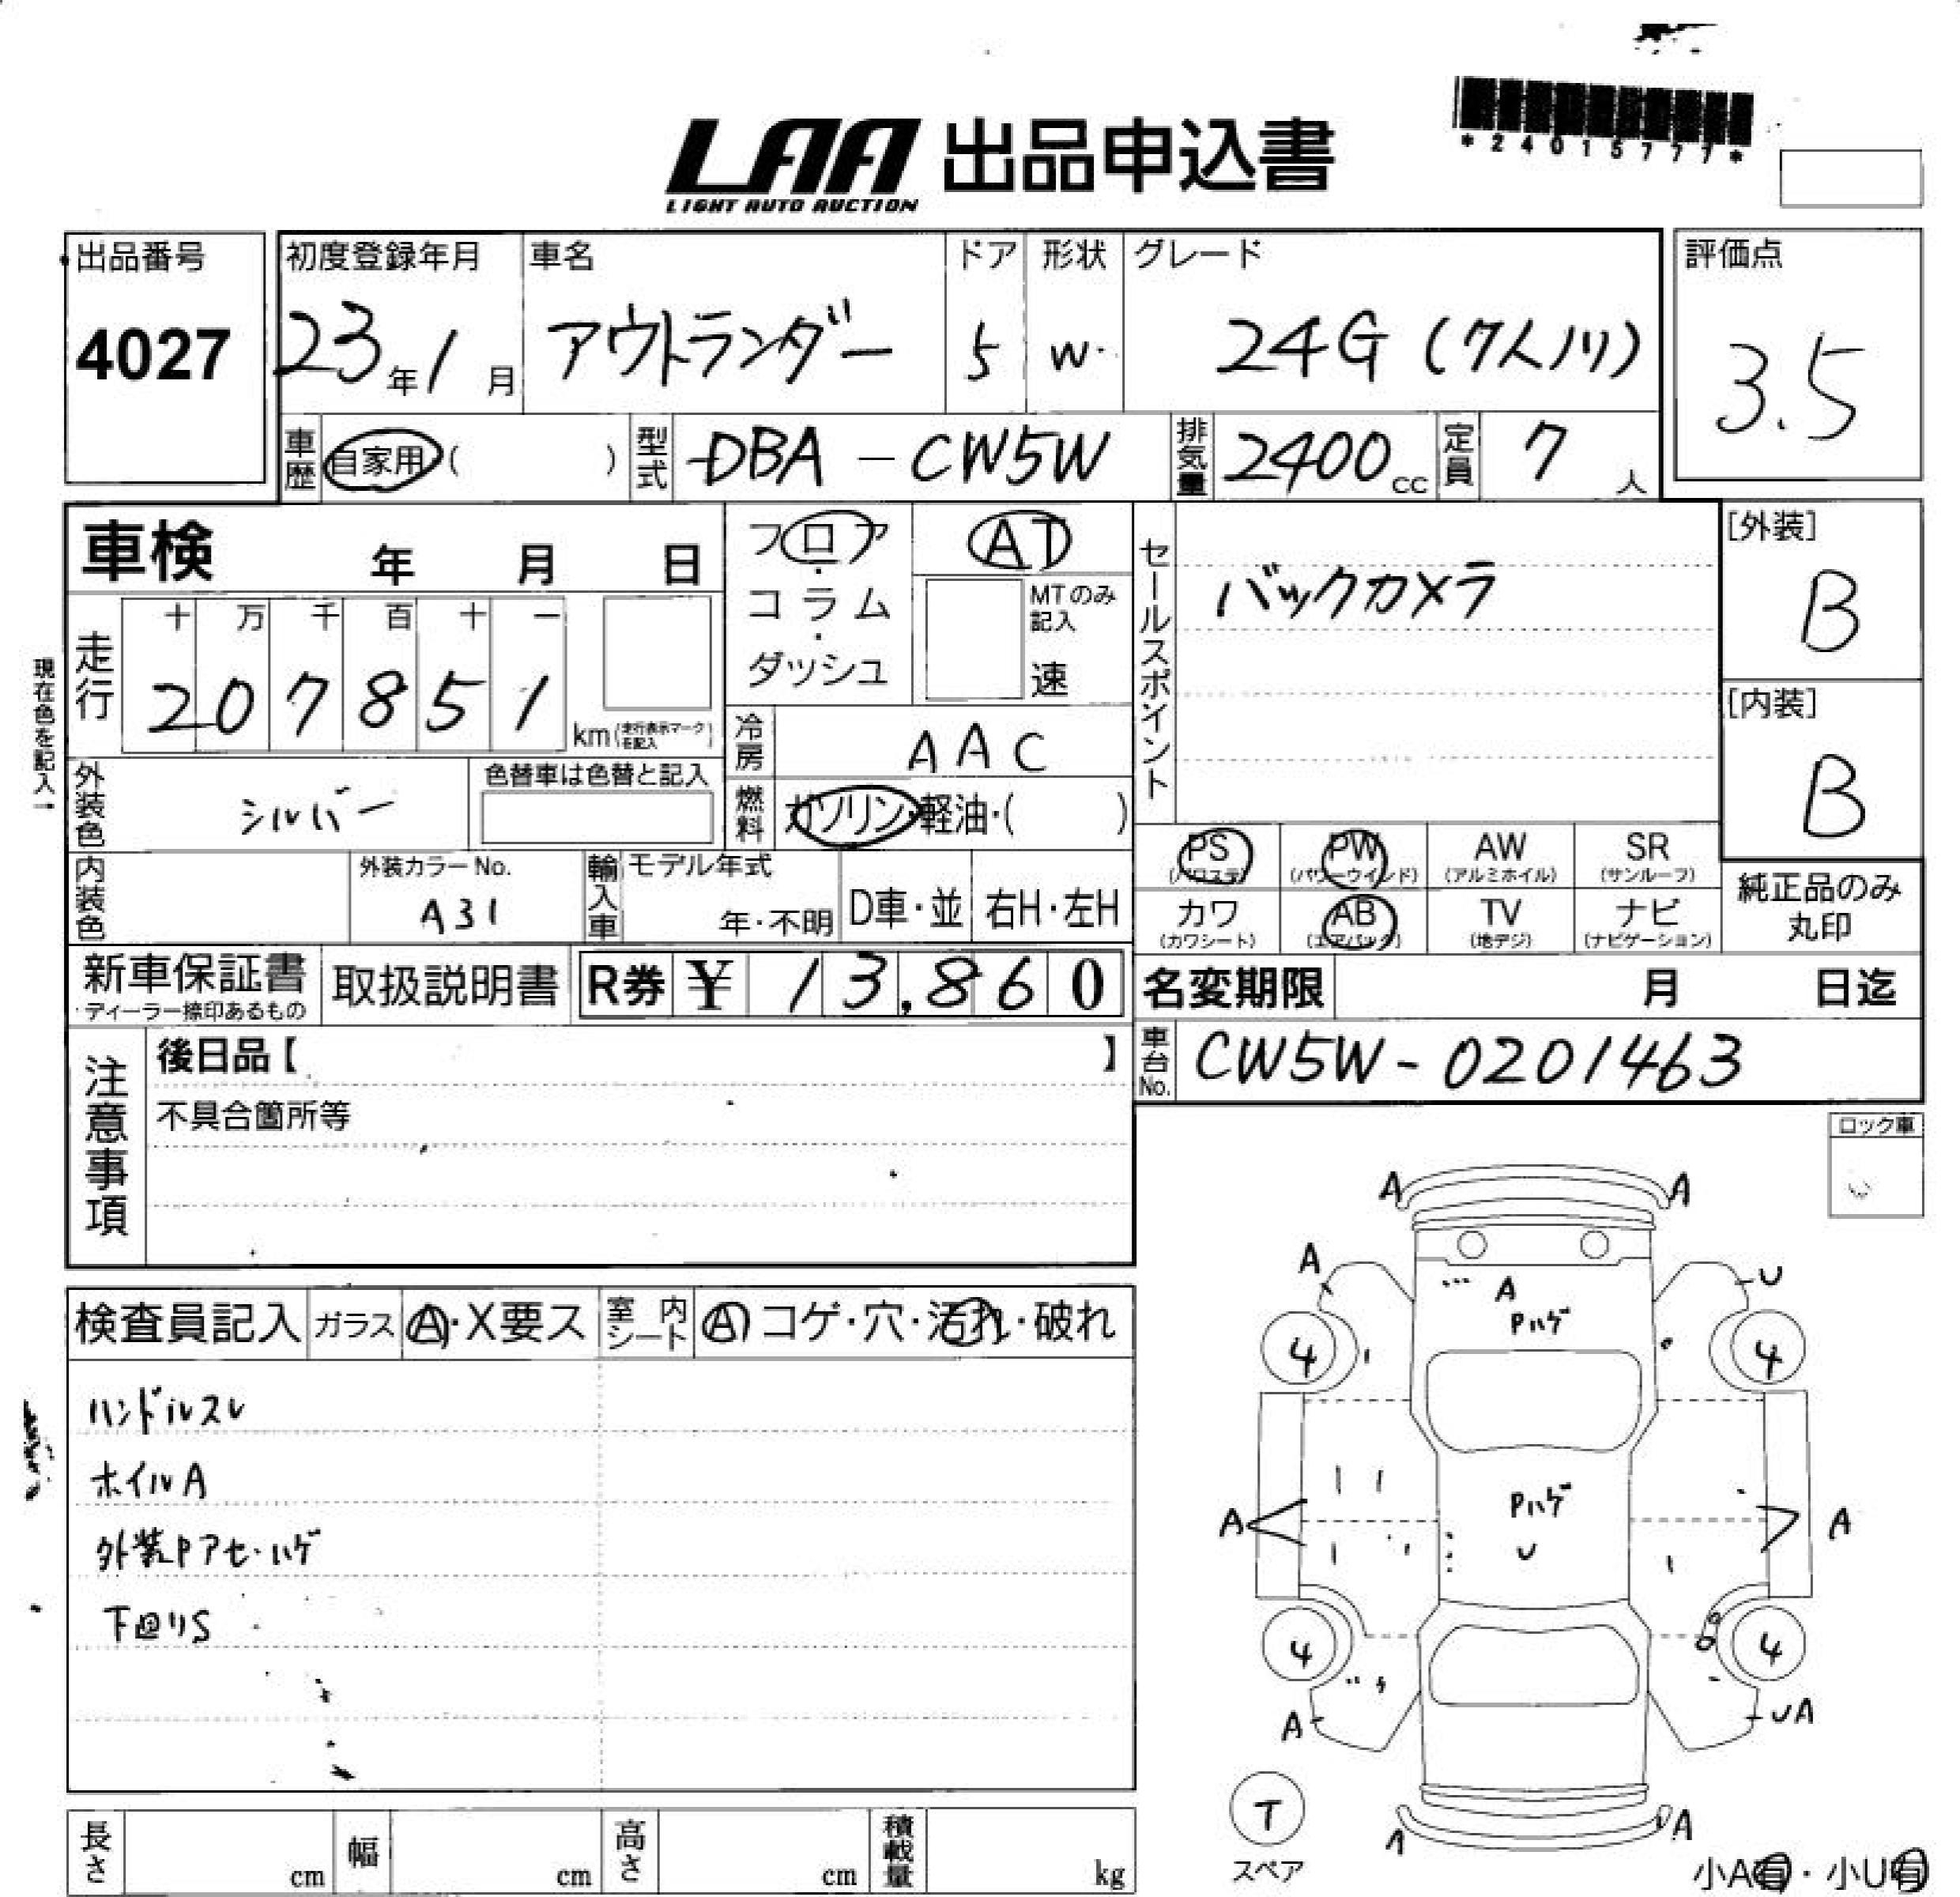 *24015777*
LAA 出品申込書
LIGHT AUTO AUCTION
出品番号
4027
初度登録年月
23年1月
車名
アウトランダー
ドア
5
形状
W
グレード
24G (7人ノリ)
評価点
3.5
車歴
自家用 ( )
型式
DBA - CW5W
排気量
2400 cc
定員
7 人
車検 年 月 日
走行
十 万 千 百 十 一
2 0 7 8 5 1
km (走行表示マークを記入)
現在色を記入→
フロア・コラム・ダッシュ
AT
MTのみ記入
速
冷房
AAC
燃料
ガソリン・軽油・( )
セールスポイント
バックカメラ
[外装]
B
[内装]
B
外装色
シルバー
色替車は色替と記入
内装色
外装カラーNo.
A31
輸入車
モデル年式
年・不明
D車・並
右H・左H
PS
(パワステ)
PW
(パワーウインド)
AW
(アルミホイル)
SR
(サンルーフ)
カワ
(カワシート)
AB
(エアバック)
TV
(地デジ)
ナビ
(ナビゲーション)
純正品のみ
丸印
新車保証書
・ディーラー捺印あるもの
取扱説明書
R券 ¥ 13,860
名変期限 月 日迄
車台No.
CW5W - 0201463
注意事項
後日品【 】
不具合箇所等
ロック車
検査員記入
ガラス
A・X要ス
室内シート
A コゲ・穴・汚れ・破れ
ハンドルスレ
ホイルA
外装Pアセ・ハゲ
下回りS
A A
A U
A
Pハゲ
4 4
Pハゲ
A A
U
4 4
A UA
T
スペア
A
小A有・小U有
長さ cm
幅 cm
高さ cm
積載量 kg